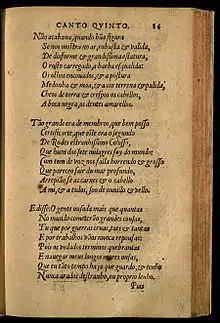 CANTO QVINTO. 86
Não acabaua, quando hũa figura
Se nos mostra no ar, robusta & valida,
De disforme & grandissima estatura,
O rosto carregado, a barba esqualida:
Os olhos encouados, & a postura
Medonha & maa, & a cor terrena & palida,
Cheos de terra & crespos os cabellos,
A boca negra, os dentes amarellos.
Tão grande era de membros, que bem posso
Certificarte, que este era o segundo
De Rodes estranhissimo Colosso,
Que hum dos sete milagres foy do mundo:
Cum tom de voz nos falla horrendo & grosso
Que pareceo sair do mar profundo,
Arrepiãose as carnes & o cabello
A mi, & a todos, soo de ouuilo & vello.
E disse: O gente ousada mais que quantas
No mundo cometerão grandes cousas,
Tu que por guerras cruas, taes & tantas
E por trabalhos vãos nunca repousas:
Pois os vedados terminos quebrantas
E nauegar meus longos mares ousas,
Que eu tãto tempo ha ja que guardo, & tenho
Nunca arados destranho, ou proprio lenho.
Pois